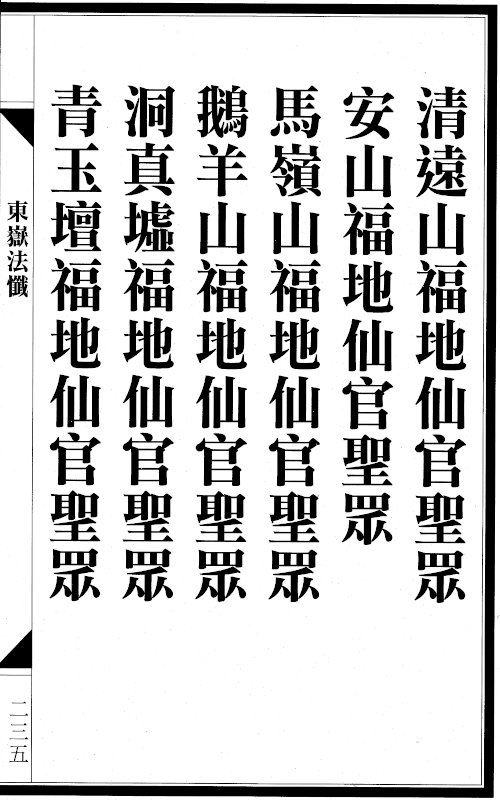 清遠山福地仙官聖眾
安山福地仙官聖眾
馬嶺山福地仙官聖眾
鵝羊山福地仙官聖眾
洞真墟福地仙官聖眾
青玉壇福地仙官聖眾
東嶽法懺
二三五